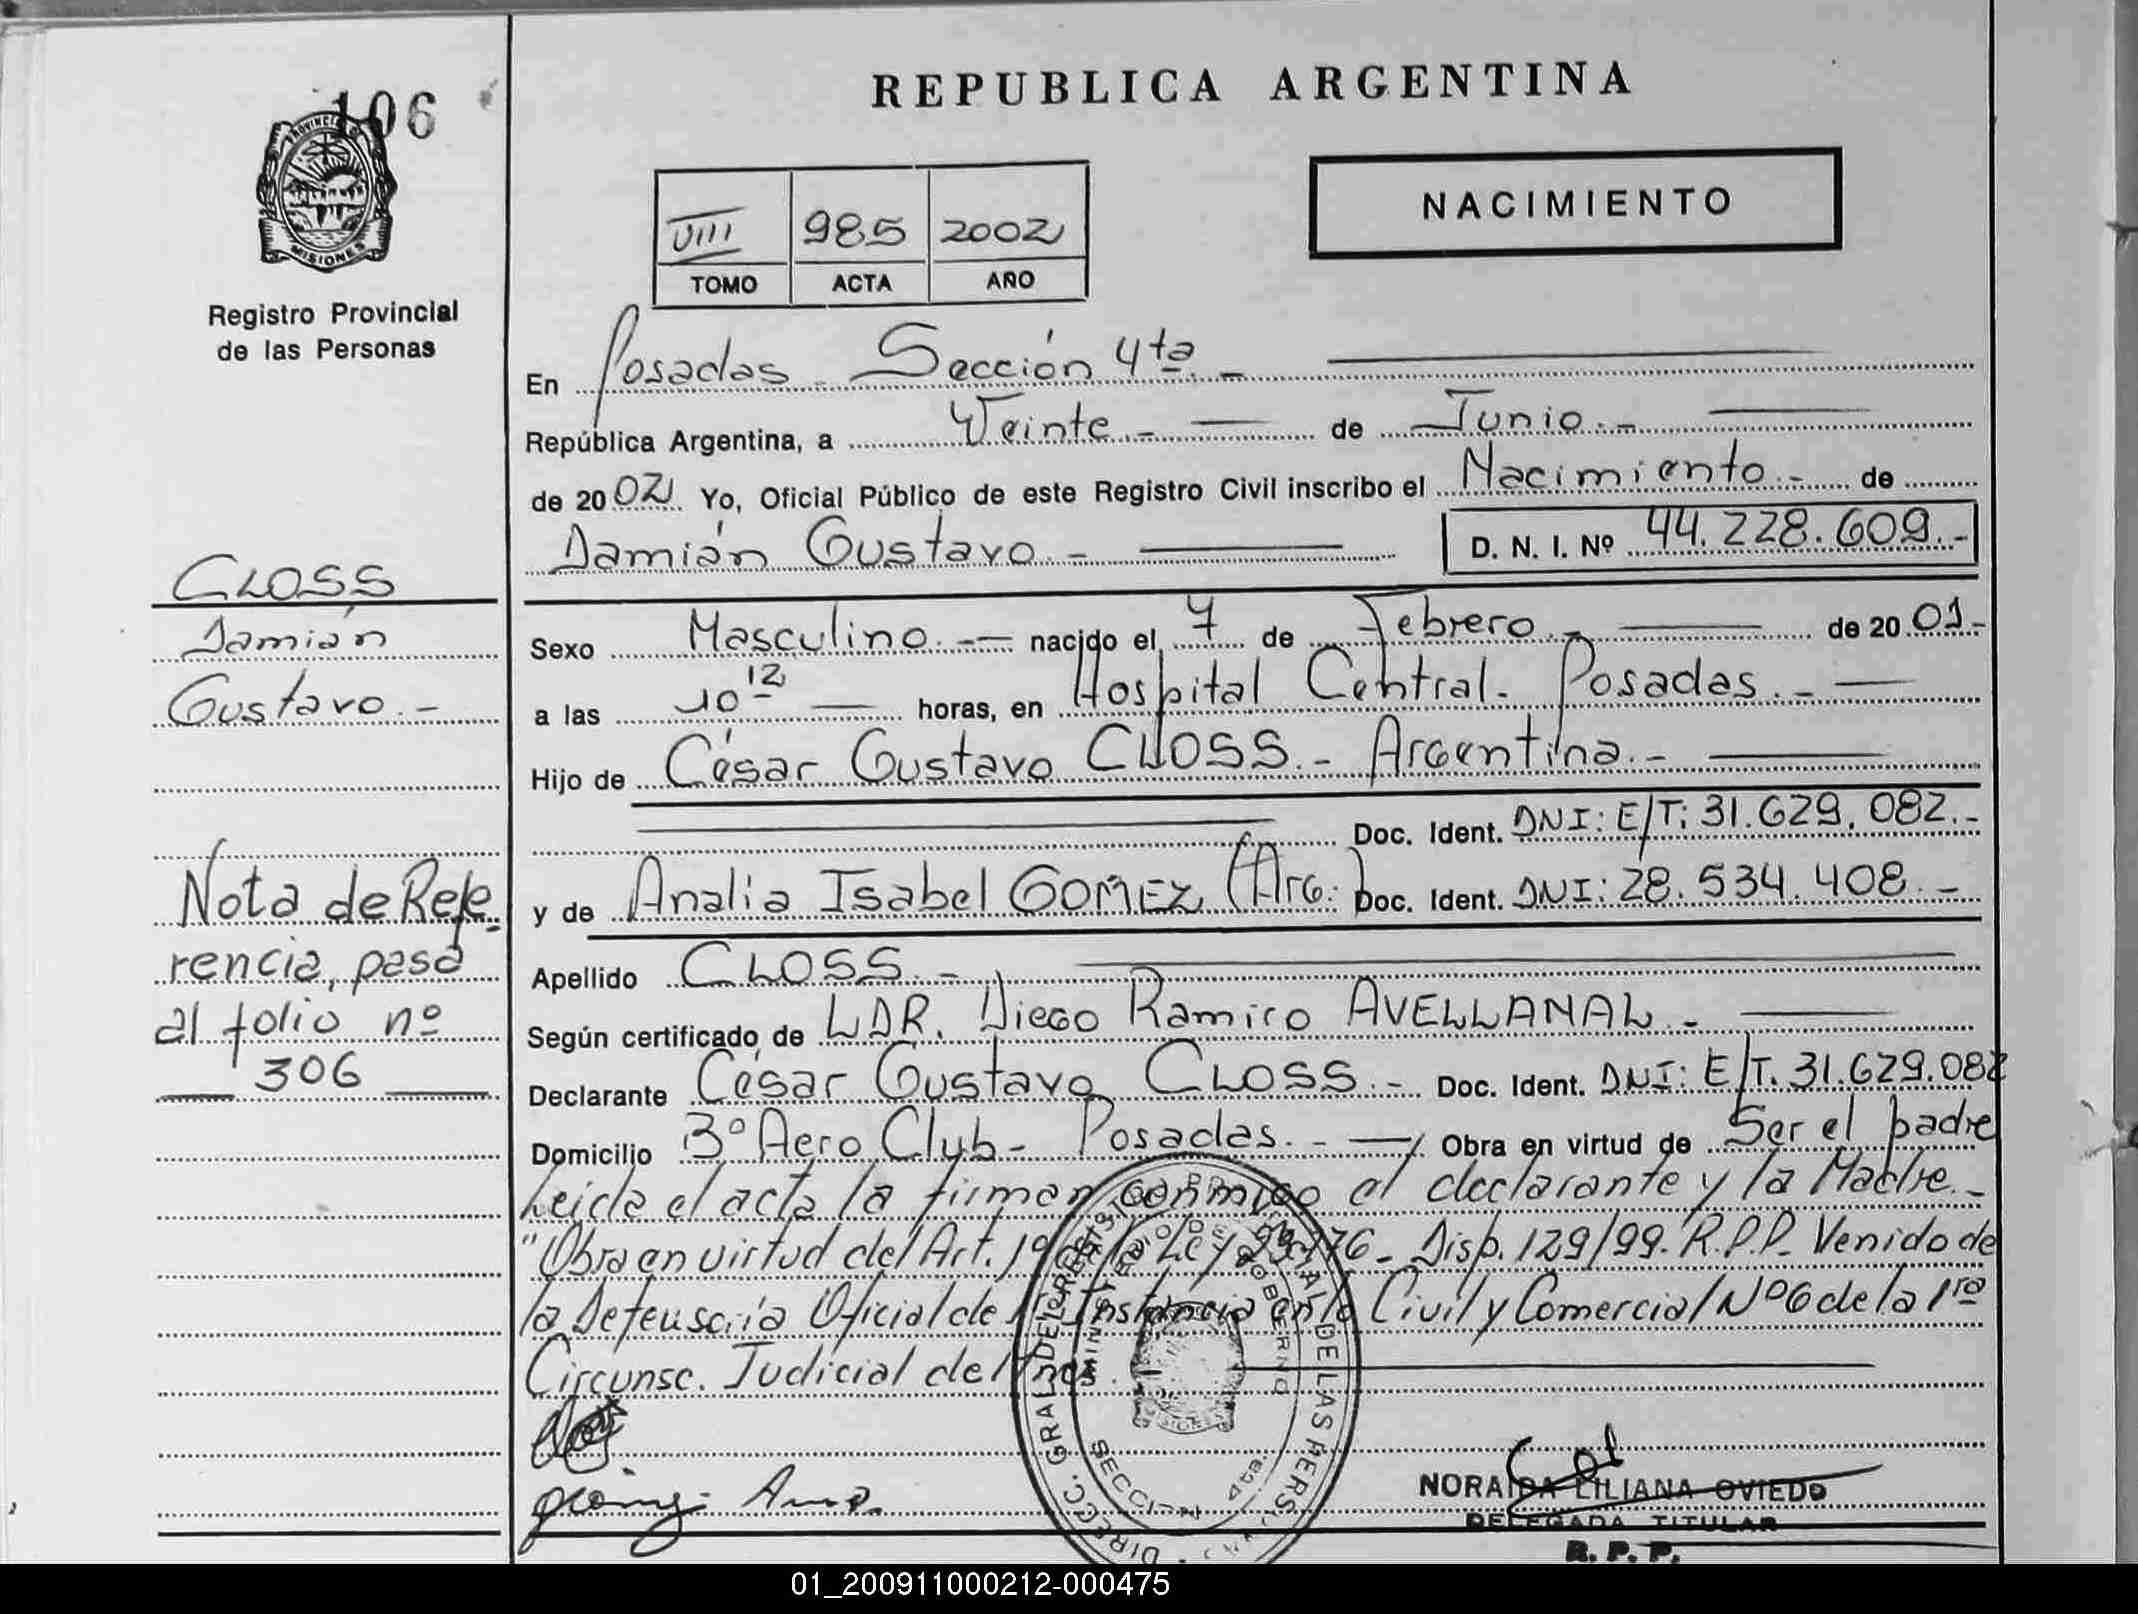 106
PROVINCIA DE
MISIONES
Registro Provincial
de las Personas
REPUBLICA ARGENTINA
NACIMIENTO
VIII 985 2002
TOMO ACTA AÑO
En Posadas - Sección 4ta. -
República Argentina, a Veinte.- de Junio.-
de 2002 Yo, Oficial Público de este Registro Civil inscribo el Nacimiento.- de
Damián Gustavo.- D. N. I. Nº 44.228.609.-
Sexo Masculino.- nacido el 7 de Febrero.- de 2001.-
a las 10 12 horas, en Hospital Central. Posadas.-
Hijo de César Gustavo CLOSS.- Argentina.-
Doc. Ident. DNI: E/T: 31.629.082.-
y de Analia Isabel GOMEZ (Arg.) Doc. Ident. DNI: 28.534.408.-
Apellido CLOSS.-
Según certificado de LDR. Diego Ramiro AVELLANAL -
Declarante César Gustavo CLOSS.- Doc. Ident. DNI: E/T. 31.629.082
Domicilio Bº Aero Club - Posadas.- Obra en virtud de Ser el padre
Leida el acta la firman conmigo el declarante y la Madre.-
"Obra en virtud del Art. 1º Ley - Disp. 129/99. R.P.P. Venido de
la Defensoría Oficial de Instancia en lo Civil y Comercial Nº 6 de la 1ra
Circunsc. Judicial de Mnes.
CLOSS
Damián
Gustavo.-
Nota de Refe
rencia, pasa
al folio nº
306
DIRECC. GRAL. DEL REGISTRO DE LAS PERSONAS
MINIST. DE GOBIERNO
SECCION 4ta.
NORAIDA LILIANA OVIEDO
DELEGADA TITULAR
R. P. P.
01_200911000212-000475